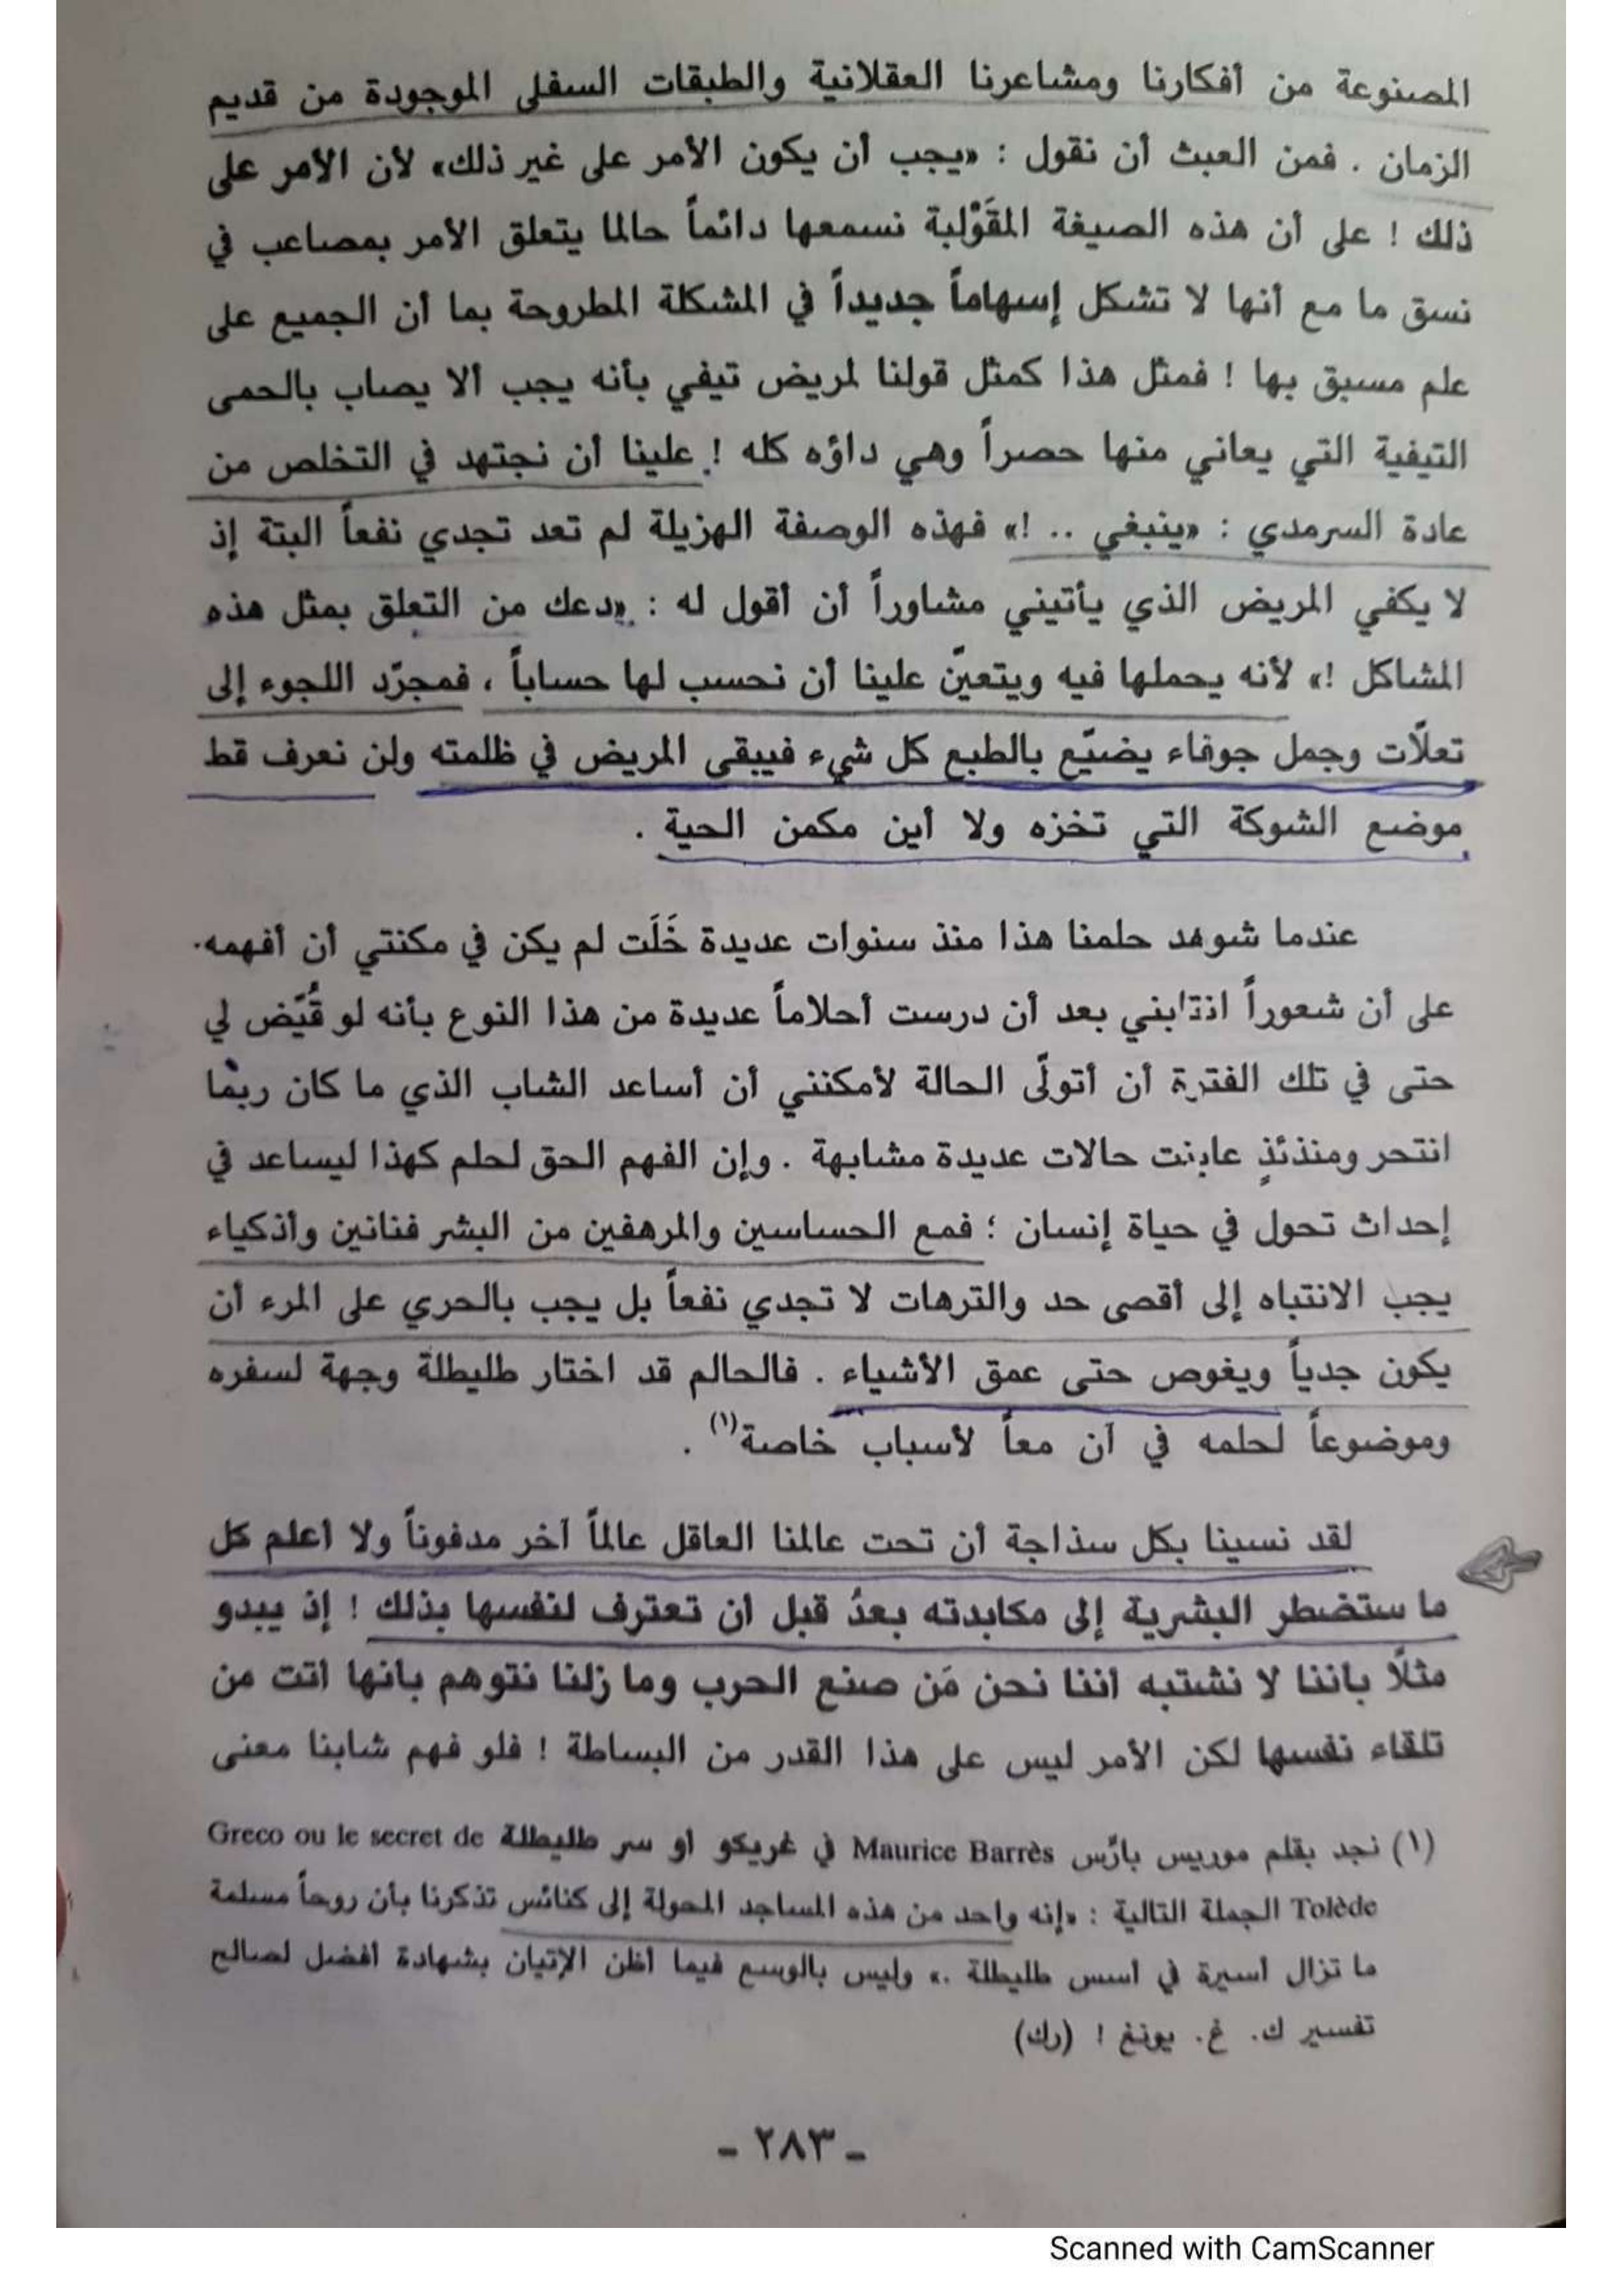 المصنوعة من أفكارنا ومشاعرنا العقلانية والطبقات السفلى الموجودة من قديم
الزمان . فمن العبث أن نقول : «يجب أن يكون الأمر على غير ذلك» لأن الأمر على
ذلك ! على أن هذه الصيغة المقَوْلبة نسمعها دائماً حالما يتعلق الأمر بمصاعب في
نسق ما مع أنها لا تشكل إسهاماً جديداً في المشكلة المطروحة بما أن الجميع على
علم مسبق بها ! فمثل هذا كمثل قولنا لمريض تيفي بأنه يجب ألا يصاب بالحمى
التيفية التي يعاني منها حصراً وهي داؤه كله ! علينا أن نجتهد في التخلص من
عادة السرمدي : «ينبغي .. !» فهذه الوصفة الهزيلة لم تعد تجدي نفعاً البتة إذ
لا يكفي المريض الذي يأتيني مشاوراً أن أقول له : «دعك من التعلق بمثل هذه
المشاكل !» لأنه يحملها فيه ويتعيّن علينا أن نحسب لها حساباً ، فمجرّد اللجوء إلى
تعلّات وجمل جوفاء يضيّع بالطبع كل شيء فيبقى المريض في ظلمته ولن نعرف قط
موضع الشوكة التي تخزه ولا أين مكمن الحية .
عندما شوهد حلمنا هذا منذ سنوات عديدة خَلَت لم يكن في مكنتي أن أفهمه.
على أن شعوراً انتابني بعد أن درست أحلاماً عديدة من هذا النوع بأنه لو قُيّض لي
حتى في تلك الفترة أن أتولّى الحالة لأمكنني أن أساعد الشاب الذي ما كان ربما
انتحر ومنذئذٍ عاينت حالات عديدة مشابهة . وإن الفهم الحق لحلم كهذا ليساعد في
إحداث تحول في حياة إنسان ؛ فمع الحساسين والمرهفين من البشر فنانين وأذكياء
يجب الانتباه إلى أقصى حد والترهات لا تجدي نفعاً بل يجب بالحري على المرء أن
يكون جدياً ويغوص حتى عمق الأشياء . فالحالم قد اختار طليطلة وجهة لسفره
وموضوعاً لحلمه في آن معاً لأسباب خاصة(١) .
لقد نسينا بكل سذاجة أن تحت عالمنا العاقل عالماً آخر مدفوناً ولا أعلم كل
ما ستضطر البشرية إلى مكابدته بعدُ قبل أن تعترف لنفسها بذلك ! إذ يبدو
مثلًا بأننا لا نشتبه أننا نحن مَن صنع الحرب وما زلنا نتوهم بأنها أتت من
تلقاء نفسها لكن الأمر ليس على هذا القدر من البساطة ! فلو فهم شابنا معنى
(١) نجد بقلم موريس بارّس Maurice Barrès في غريكو أو سر طليطلة Greco ou le secret de
Tolède الجملة التالية : «إنه واحد من هذه المساجد المحولة إلى كنائس تذكرنا بأن روحاً مسلمة
ما تزال أسيرة في أسس طليطلة .» وليس بالوسع فيما أظن الإتيان بشهادة أفضل لصالح
تفسير ك. غ. يونغ ! (رك)
- ٢٨٣ -
Scanned with CamScanner